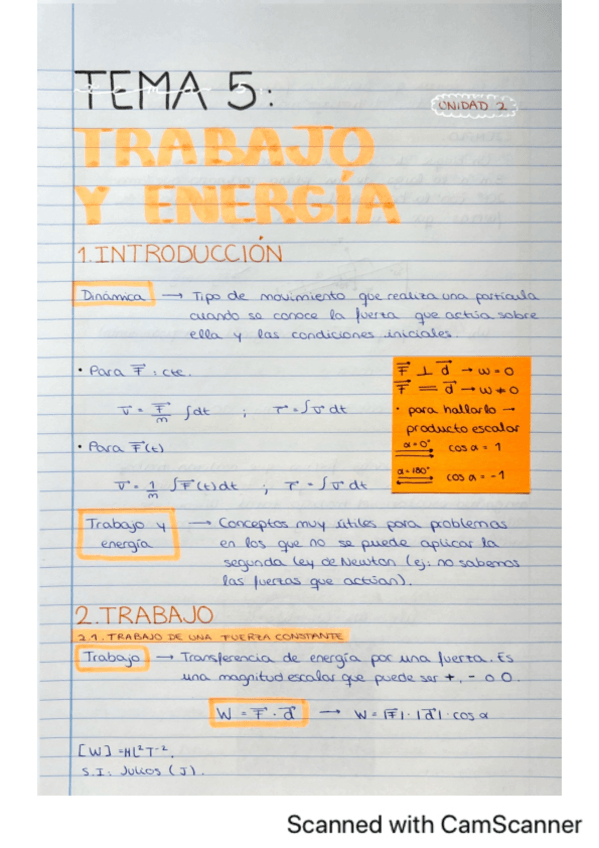 TEMA 5:
UNIDAD 2
TRABAJO
Y ENERGÍA
1. INTRODUCCIÓN
Dinámica → Tipo de movimiento que realiza una partícula
cuando se conoce la fuerza que actúa sobre
ella y las condiciones iniciales.
• Para F⃗ : cte.
v⃗ = F⃗/m ∫dt ; r⃗ = ∫v⃗ dt
• Para F⃗(t)
v⃗ = 1/m ∫F⃗(t)dt ; r⃗ = ∫v⃗ dt
F⃗ ⊥ d⃗ → w = 0
F⃗ = d⃗ → w ≠ 0
• para hallarlo →
producto escalar
α=0° cos α = 1
α=180° cos α = -1
Trabajo y → Conceptos muy útiles para problemas
energía en los que no se puede aplicar la
segunda ley de Newton (ej: no sabemos
las fuerzas que actúan).
2. TRABAJO
2.1. TRABAJO DE UNA FUERZA CONSTANTE
Trabajo → Transferencia de energía por una fuerza. Es
una magnitud escalar que puede ser +, - o 0.
W = F⃗ · d⃗ → W = |F⃗| · |d⃗| · cos α
[W] = ML²T⁻².
S.I: Julios (J).
Scanned with CamScanner